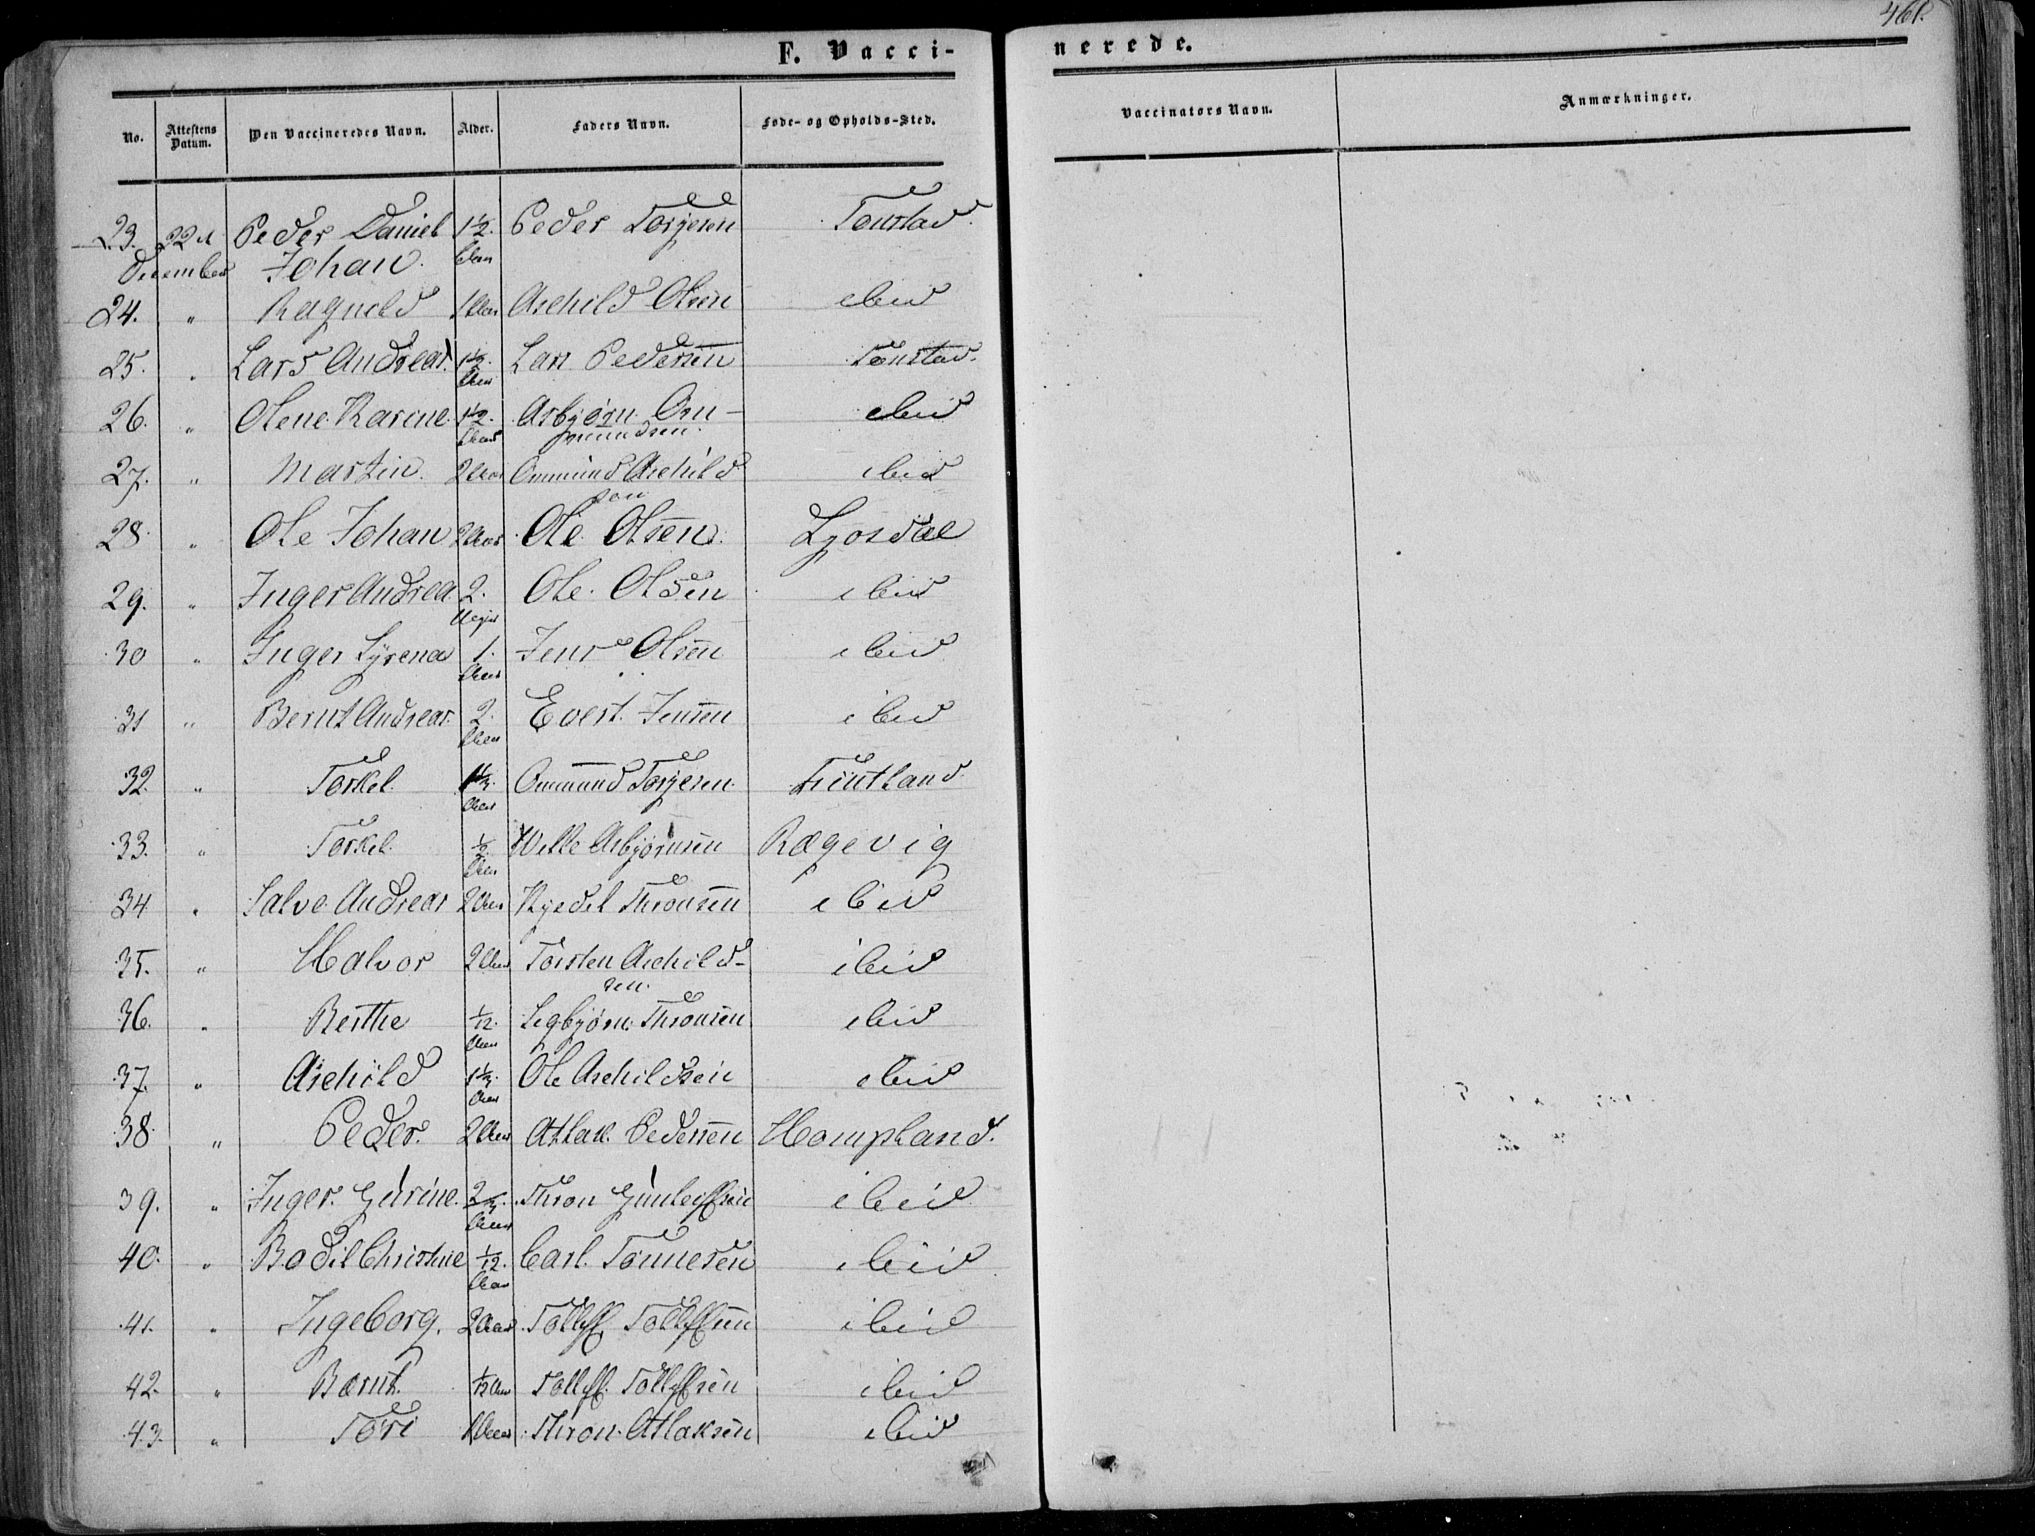 461.
F. Vacci-
nerede.
No. Attestens Datum. Den Vaccineredes Navn. Alder. Faders Navn. Føde- og Opholds-Sted.
Vaccinators Navn. Anmærkninger.
23. 22d Peder Daniel 1½ Peder Torjesen Tonstad.
December Johan. Aar
24. " Ragneld 1 Aar Aschild Olsen ibid
25. " Lars Andreas. 1½ Aar Lars Pedersen Tonstad.
26. " Olene Karine. 1½ Aar Asbjørn Om-
mundsen. ibid
27. " Martin. 2 Aar Ommund Aschild
sen ibid
28. " Ole Johan 2 Aar Ole Olsen. Ljosdal
29. " Inger Andrea 2. Uger Ole Olsen ibid
30 " Inger Syrena 1. Aar Jens Olsen ibid
31 " Bernt Andreas. 2. Aar Evert Jensen ibid
32. " Torkel. Aar Ommund Torjesen. Fintland
33. " Torkel. ½ Aar Welle Asbjørnsen Rægevig
34 " Salve Andreas 2 Aar Kjedel Thronsen ibid
35. " Halvor 2 Aar Torsten Aschild-
sen. ibid
36. " Berthe 1/12. Aar Sigbjørn Thronsen ibid
37. " Aschild Aar Ole Aschildsen ibid
38 " Peder. 2 Aar Atlak Pedersen Hompland.
39. " Inger Gurine. Aar Thron Gunleffsen ibid
40. " Bodil Christine 1/12. Aar Carl Tønnesen ibid
41. " Ingeborg. 2 Aar Tolleff Tolleffsen ibid
42. " Bernt. 1/12 Aar Tolleff Tolleffsen ibid
43. " Tori 1 Aar Thron Atlaksen ibid